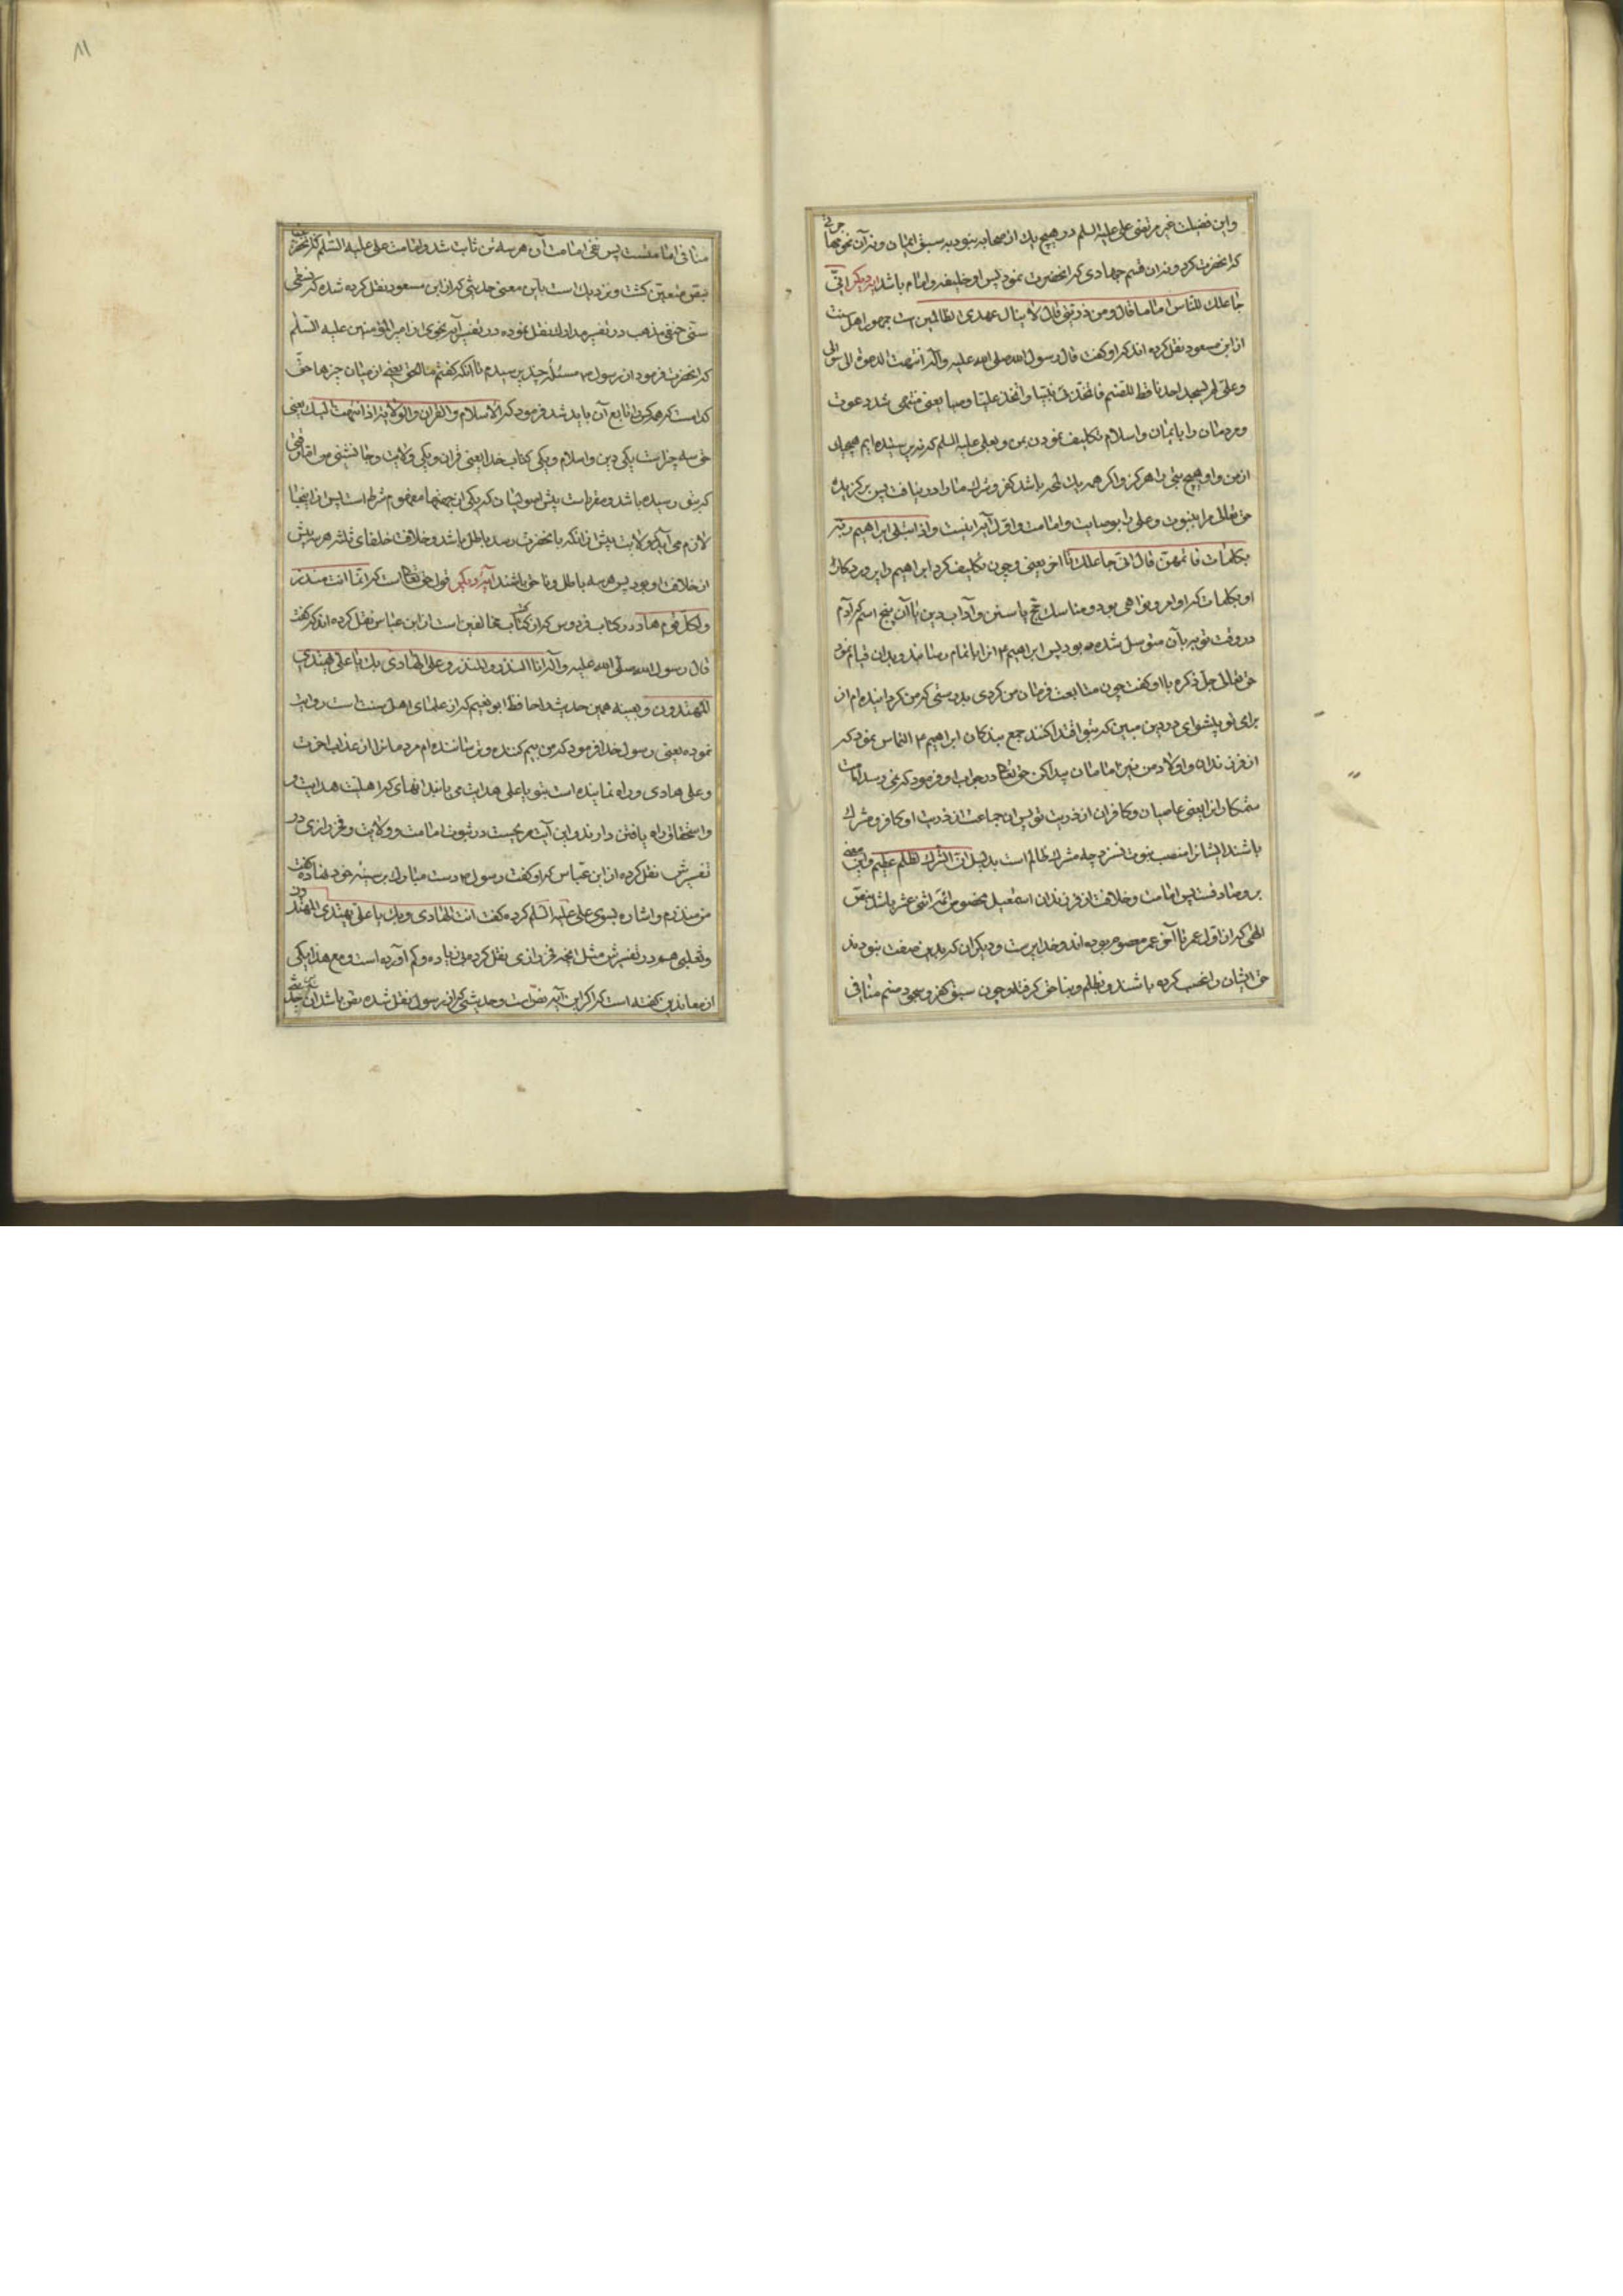 واین فضیلت غیر مرتضی علی علیه السلم در هیچ یك از صحابه نبود به سبق ایمان ونه آن نحو جهادی
که انحضرت کرد ونه ان قسم جهادی که انحضرت نمود پس او خلیفه وامام باشد ایه دیکر انی
جاعلك للناس اماما قال ومن ذریتی قال لا ینال عهدی الظالمین است جمهور اهل سنت
از ابن مسعود نقل کرده اند که او کفت قال رسول الله صلی الله علیه وآله انتهت الدعوة الی والی
وعلی لم یسجد احدنا قط للصنم فاتخذنی نبیا واتخذ علیا وصیا یعنی منتهی شد دعوت
ومردمان را بایمان واسلام تکلیف نمودن بمن وبعلی علیه السلم که نپرستیده ایم هیچیك
از من واو هیچ بتی را هرکز واکر همه یك لمحه باشد کفر وشرك ما را در نیافت پس برکزیده
حق تعالی مرا بنبوت وعلی را بوصایت وامامت واول آیه اینست واذ ابتلی ابراهیم ربه
بکلمات فاتمهن قال انی جاعلك تا اخر یعنی وچون تکلیف کرد ابراهیم را پروردکار
او بکلمات که اوامر ونواهی بود ومناسك حج یا سنن وآداب دین یا آن پنج اسم که آدم
در وقت توبه بآن متوسل شده بود پس ابراهیم ۴ انرا باتمام رسانید وبدان قیام نمود
حق تعالی جل ذکره با او کفت چون متابعت فرمان من کردی بدرستی که من کردانیده ام از
برای تو پیشوای در دین مبین که بتو اقتدا کنند جمع بندکان ابراهیم ۴ التماس نمود که
از فرزندان واولاد من نیز امامان پیدا کن حق تعالی در جواب او فرمود که نمی رسد امامت
ستمکاران را یعنی عاصیان وکافران از ذریت تو پس ان جماعت از ذریت او کافر ومشرك
باشند ایشانرا منصب نبوت نسزد چه مشرك ظالم است بدلیل ان الشرك لظلم عظیم واین معنی
برو صادقست پس امامت وخلافت از فرزندان اسمعیل مخصوص ائمه اثنی عشر باشد بنص
الهی که از اول عمر تا آخر عمر معصوم بوده اند وخداپرست ودیکران که بدین صفت نبودند
حق ایشان را غصب کرده باشند وبظلم وبناحق کرفته وچون سبق کفر وسجود صنم منافی
منافی امامتست پس نفی امامت آن هر سه تن ثابت شد وامامت علی علیه السلم که انحضرت
بنص متعین کشت ونزدیك است باین معنی حدیثی که از ابن مسعود نقل کرده شده که نسفی
سنی حنفی مذهب در تفسیر مدارك نقل نموده در تفسیر آیه نجوی از امیر المؤمنین علیه السلم
که انحضرت فرمود از رسول ۴ مسئله چند پرسیدم تا انکه کفتم ما الحق یعنی از میان چیزها حق
کدامست که همه کس را تابع آن باید شد فرمود که الاسلام والقران والولایة اذا انتهت الیك یعنی
حق سه چیز است یکی دین واسلام ویکی کتاب خدا یعنی قران ویکی ولایت وجانشینی من اما وقتی
که بتو رسیده باشد ومقرر است پیش اصولیان که یکی از حجتها مفهوم شرط است پس از اینجا
لازم می آید که ولایت پیش از انکه بانحضرت رسد باطل باشد وخلافت خلفای ثلثه هر سه پیش
از خلافت او بود پس هر سه باطل وناحق باشند ایه دیکر قول حق تعالی است که انما انت منذر
ولکل قوم هاد در کتاب فردوس که از کتاب مخالفین است از ابن عباس نقل کرده اند که کفت
قال رسول الله صلی الله علیه وآله انا المنذر وعلی الهادی بك یا علی یهتدی
المهتدون وبعینه همین حدیث را حافظ ابو نعیم که از علمای اهل سنت است روایت
نموده یعنی رسول خدا فرمود که من بیم کننده وترساننده ام مردمانرا از عذاب اخرت
وعلی هادی وراه نماینده است بتو یا علی هدایت می یابند انهای که اهلیت هدایت
واستحقاق راه یافتن دارند واین آیت صریحست در ثبوت امامت وولایت وفخر رازی در
تفسیرش نقل کرده از ابن عباس که او کفت رسول ۴ دست مبارك بر سینه خود نهاده کفت
من منذرم واشاره بسوی علی علیه السلم کرده کفت انت الهادی وبك یا علی یهتدی المهتدون
وثعلبی هم در تفسیرش مثل انچه فخر رازی نقل کرده بی زیاده وکم آورده است ومع هذا یکی
از معاندین کفته است که اکر این ایه نص است وحدیثی که از رسول نقل شده نص باشد